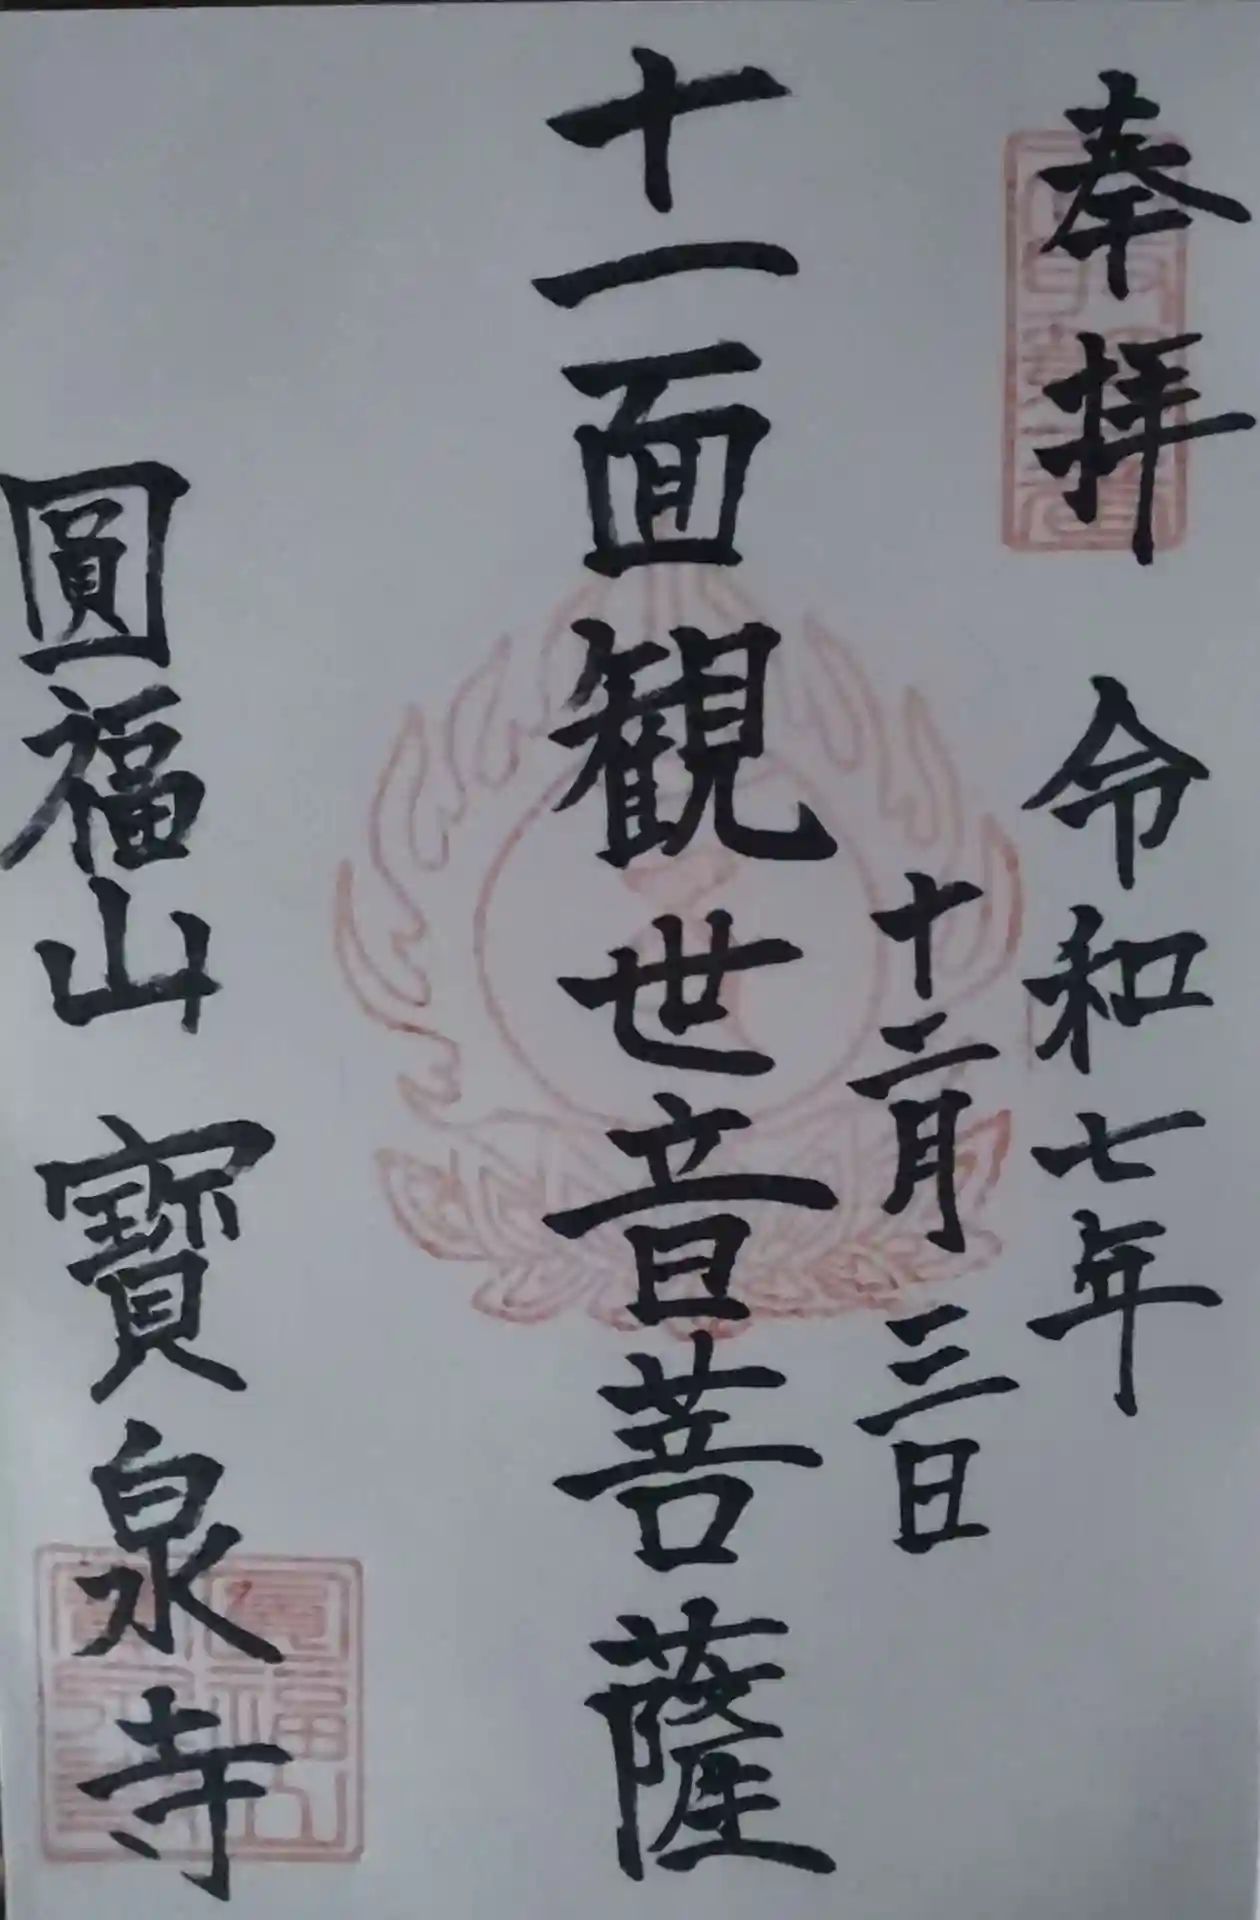 奉拝 令和七年
十二月三日
十一面観世音菩薩
圓福山 寶泉寺